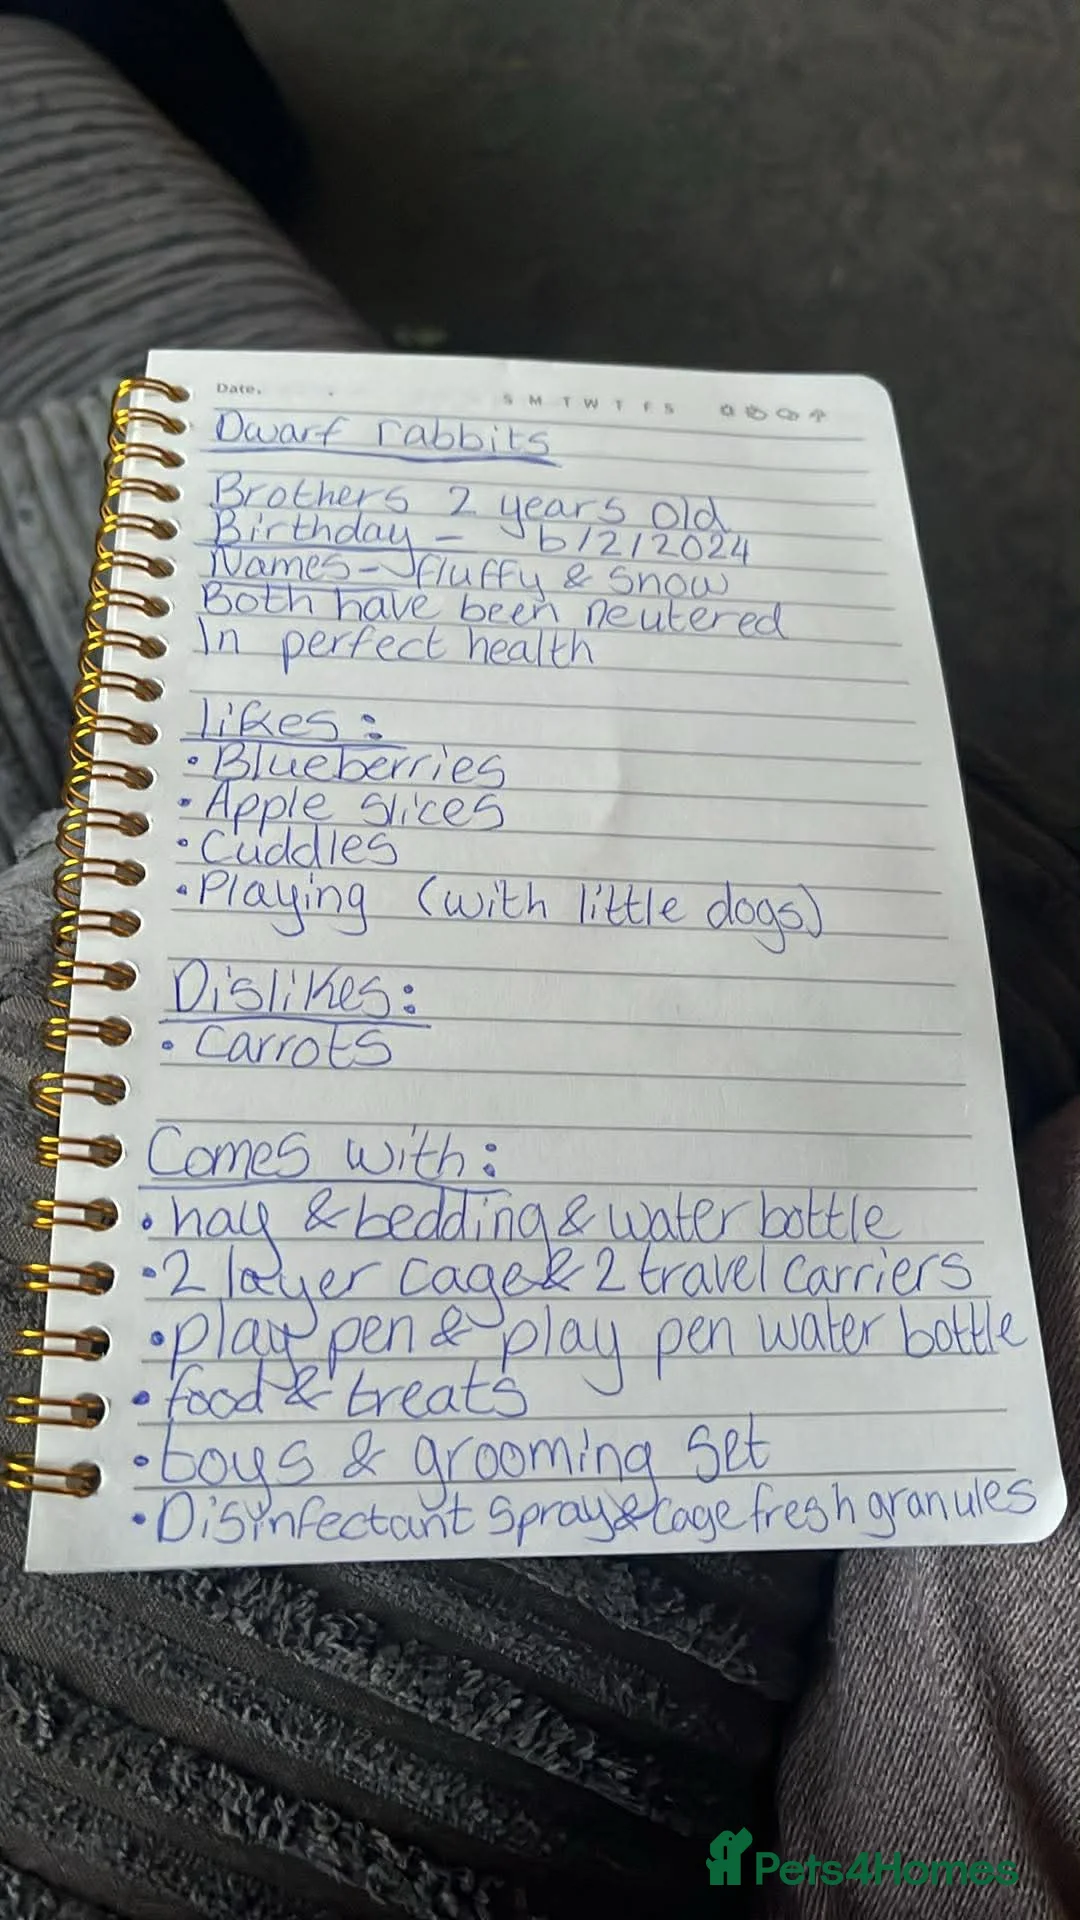 Date.
S M T W T F S
Dwarf rabbits
Brothers 2 years old
Birthday - 6/2/2024
Names - fluffy & Snow
Both have been neutered
In perfect health
likes:
• Blueberries
• Apple slices
• Cuddles
• Playing (with little dogs)
Dislikes:
• Carrots
Comes with:
• hay & bedding & water bottle
• 2 layer cage & 2 travel carriers
• play pen & play pen water bottle
• food & treats
• toys & grooming set
• Disinfectant spray & cage fresh granules
Pets4Homes